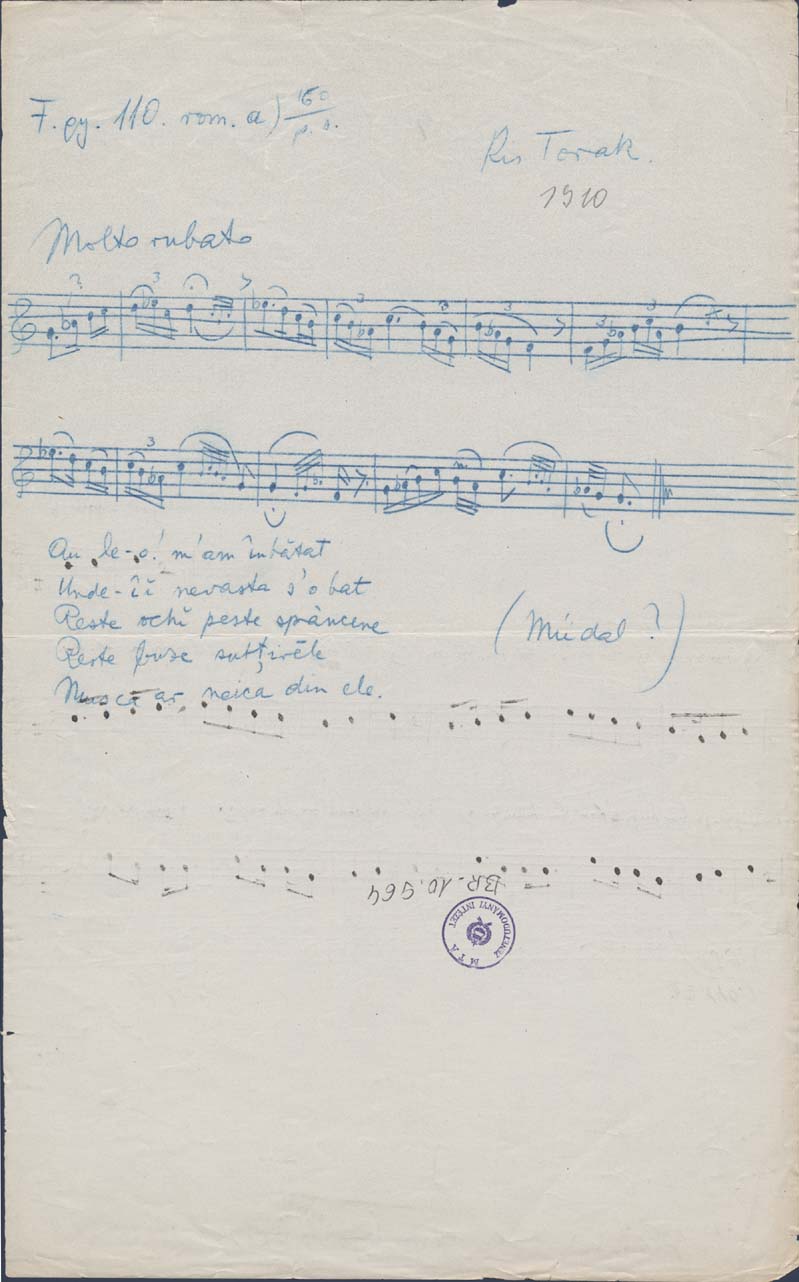 F. gy. 110. rom. a) 160
p. s.
Kis Torak.
1910
Molto rubato
Au le-o! m'am înbătat
Unde-ĭĭ nevasta s'o bat
Peste ochĭ peste sprâncene
Peste buze supțirèle
Muscă ar neica din ele.
(Mi dal?)
BR. 10.964
MTA ZENETUDOMÁNYI INTÉZET